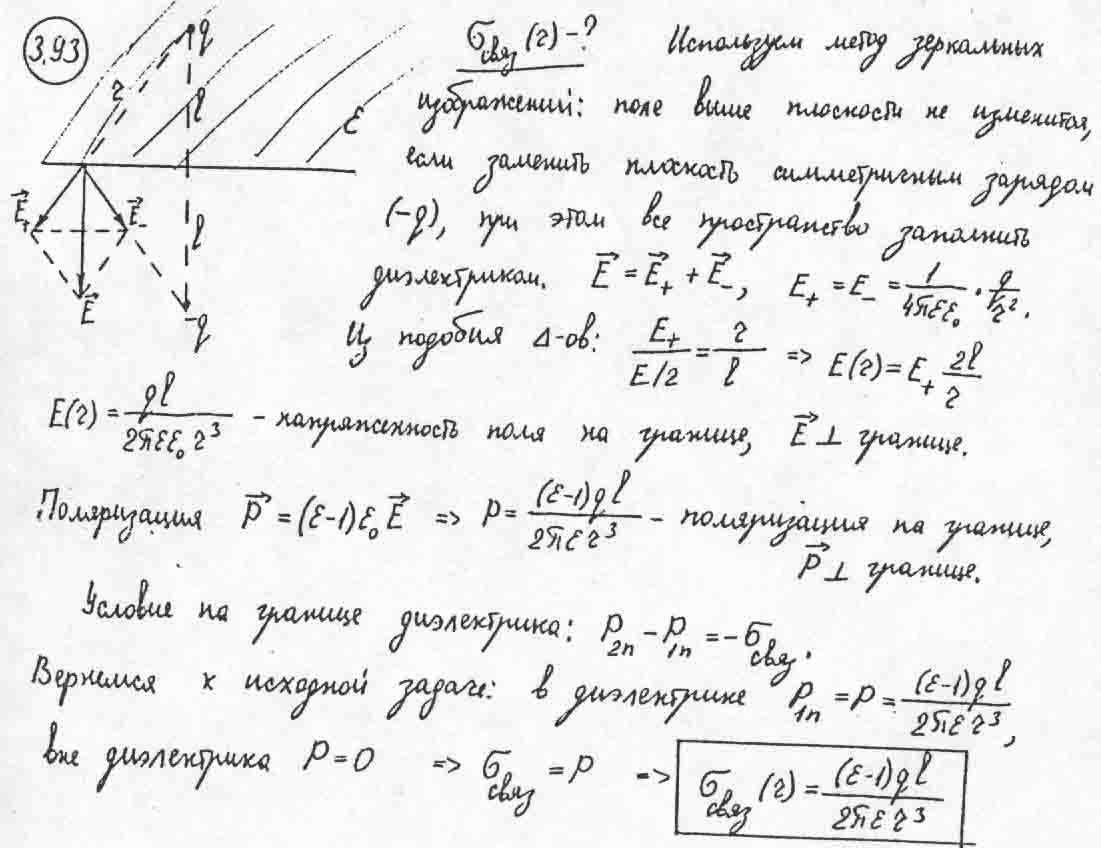 3.93
σ_связ (r) - ? Используем метод зеркальных
изображений: поле выше плоскости не изменится,
если заменить плоскость симметричным зарядом
(-q), при этом все пространство заполнить
диэлектриком. E⃗ = E⃗₊ + E⃗₋, E₊ = E₋ = 1/(4πεε₀) · q/r².
Из подобия Δ-ов: E₊/(E/2) = r/l => E(r) = E₊ 2l/r
q
r
l
ε
E⃗₊
E⃗₋
l
E⃗
-q
E(r) = ql/(2πεε₀r³) - напряженность поля на границе, E⃗ ⊥ границе.
Поляризация P⃗ = (ε-1)ε₀E⃗ => P = (ε-1)ql/(2πεr³) - поляризация на границе,
P⃗ ⊥ границе.
Условие на границе диэлектрика: P₂ₙ - P₁ₙ = -σ_связ.
Вернемся к исходной задаче: в диэлектрике P₁ₙ = P = (ε-1)ql/(2πεr³),
вне диэлектрика P = 0 => σ_связ = P => σ_связ (r) = (ε-1)ql/(2πεr³)